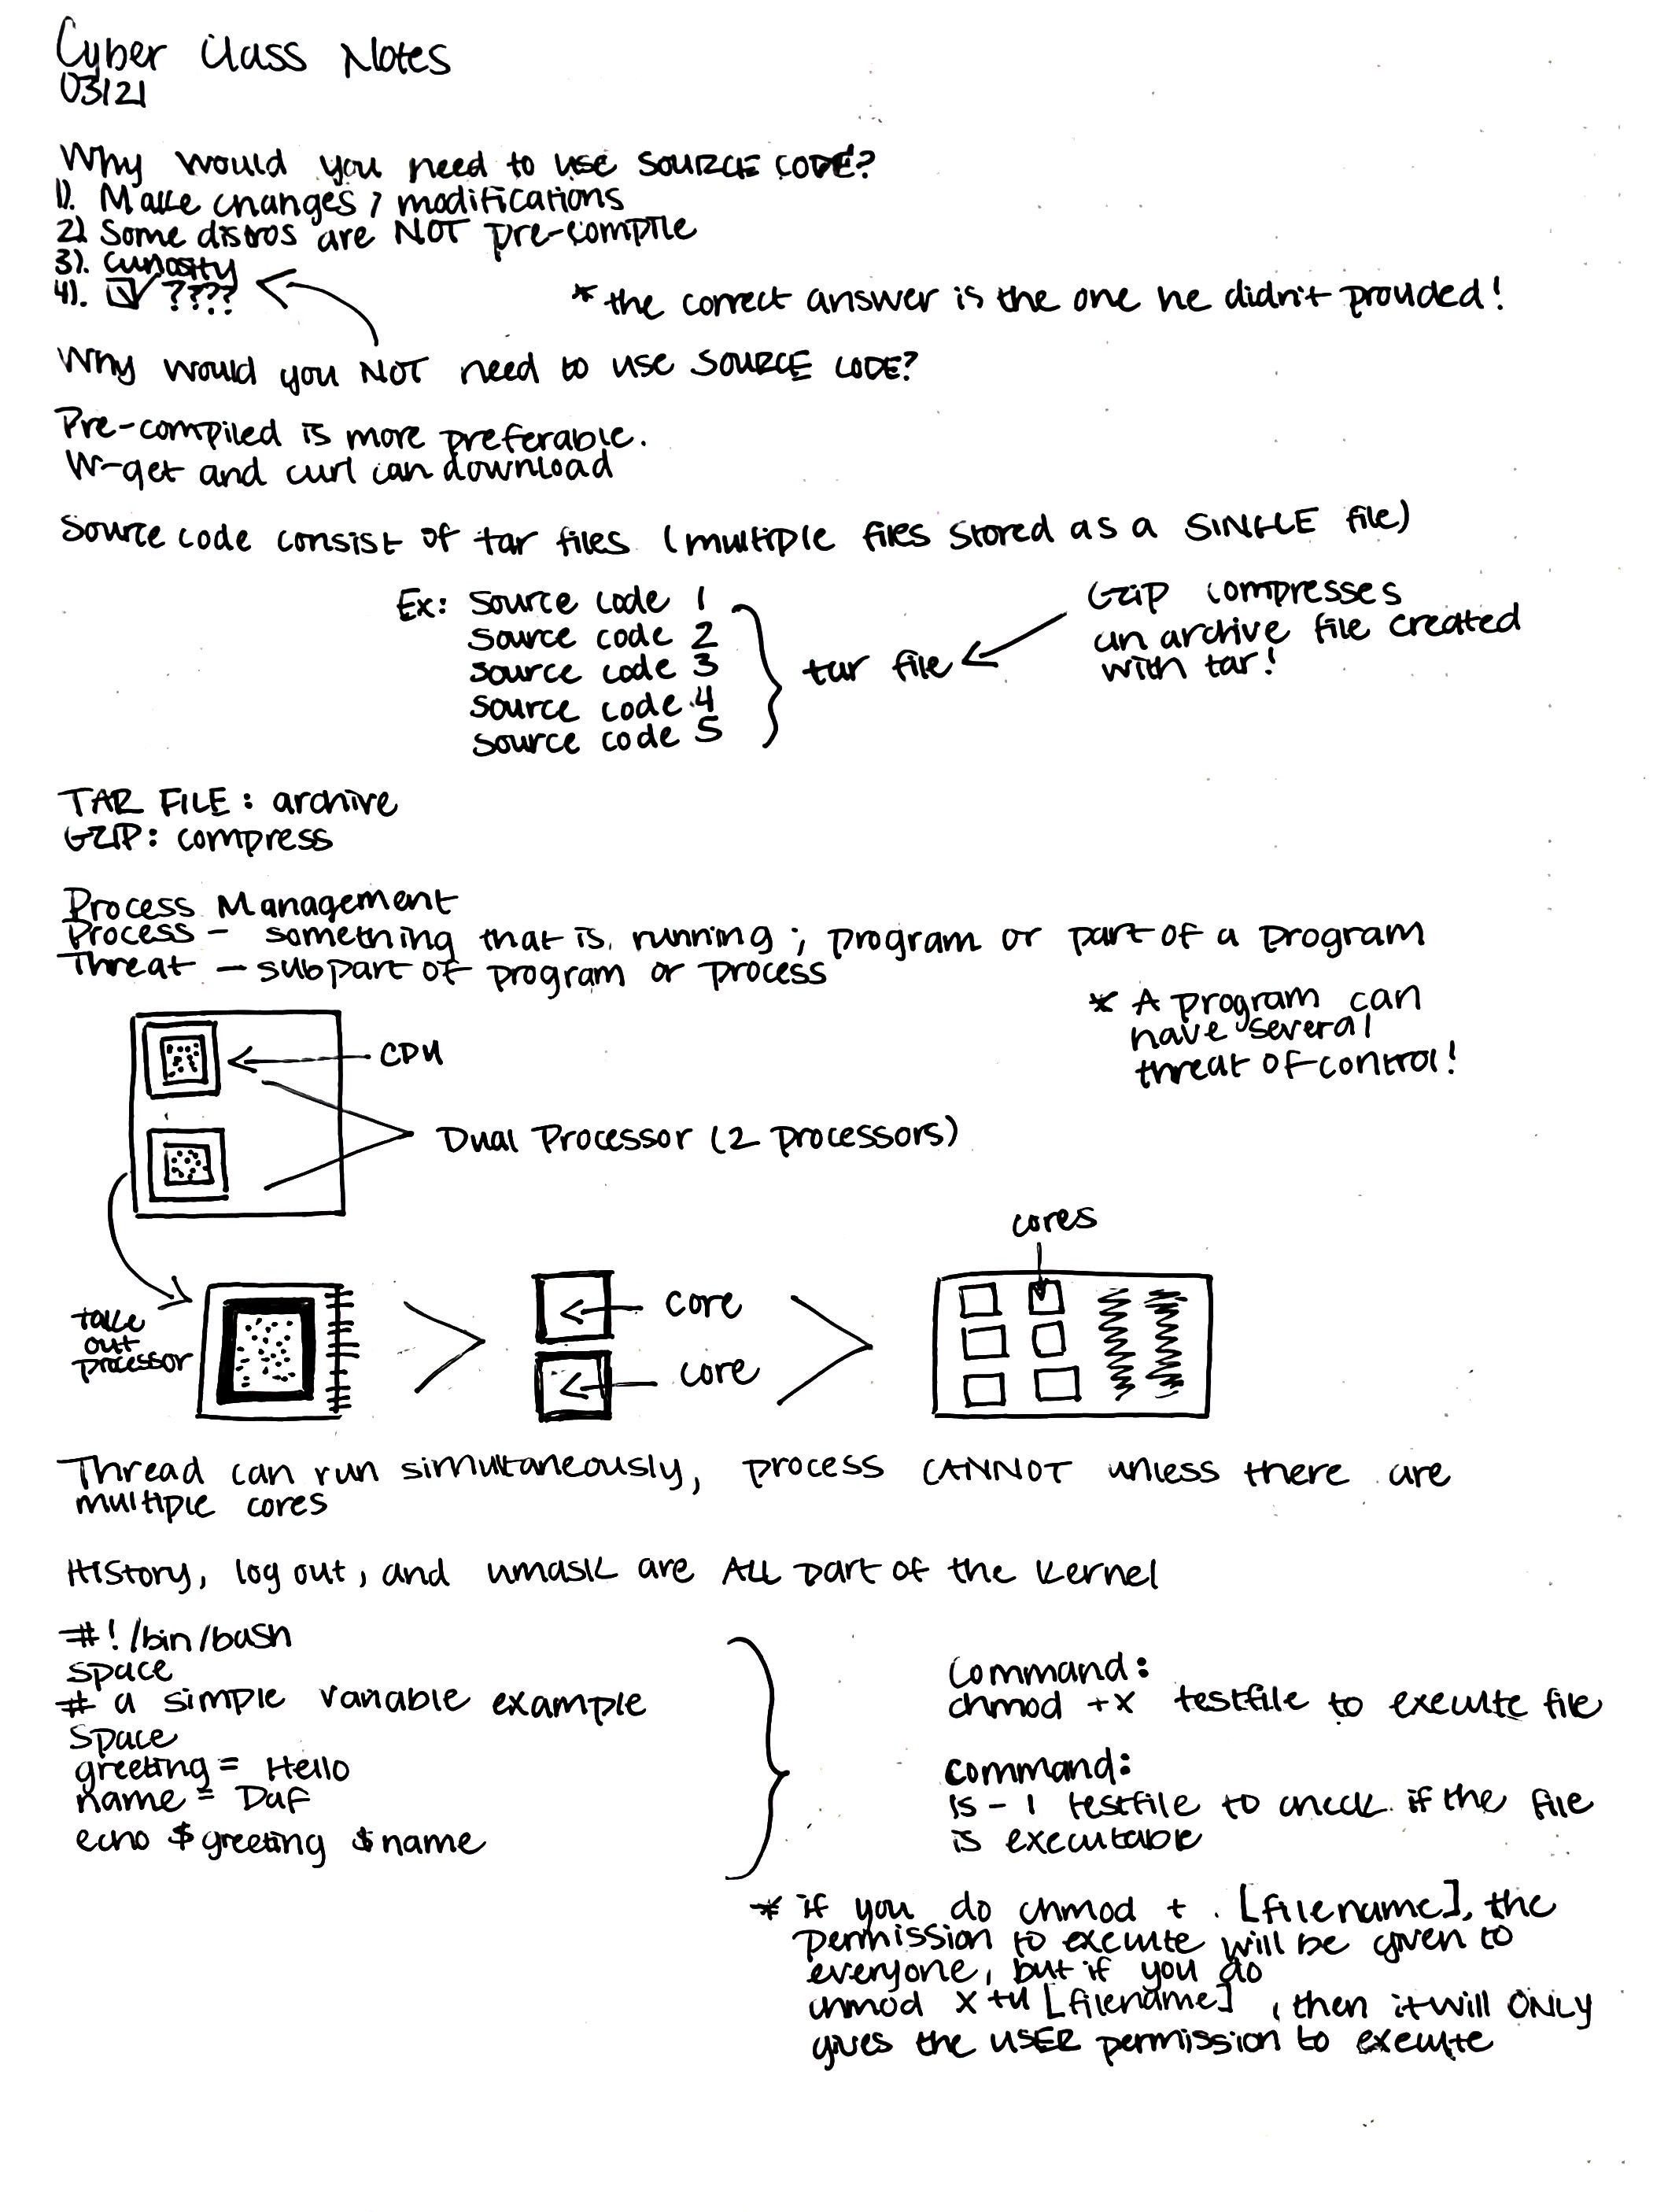 Cyber Class Notes
03/21
Why would you need to use SOURCE CODE?
1). Make changes & modifications
2) Some distros are NOT pre-compile
3). curiosity
4). ☑ ????
* the correct answer is the one he didn't prouded!
Why would you NOT need to use SOURCE CODE?
Pre-compiled is more preferable.
W-get and curl can download
Source code consist of tar files (multiple files stored as a SINGLE file)
Ex: source code 1
source code 2
source code 3
source code 4
source code 5
tar file
GZIP compresses
an archive file created
with tar!
TAR FILE: archive
GZIP: compress
Process Management
Process - something that is running; program or part of a program
Threat - subpart of program or process
* A program can
have several
threat of control!
CPU
Dual Processor (2 processors)
take
out
processor
core
core
cores
Thread can run simultaneously, process CANNOT unless there are
multiple cores
History, log out, and umask are ALL part of the kernel
#!/bin/bash
space
# a simple variable example
space
greeting = Hello
name = Daf
echo $greeting $name
Command:
chmod +x testfile to execute file
command:
ls -l testfile to check if the file
is executable
* if you do chmod + . [filename], the
permission to execute will be given to
everyone, but if you do
chmod x+u [filename], then it will ONLY
gives the USER permission to execute